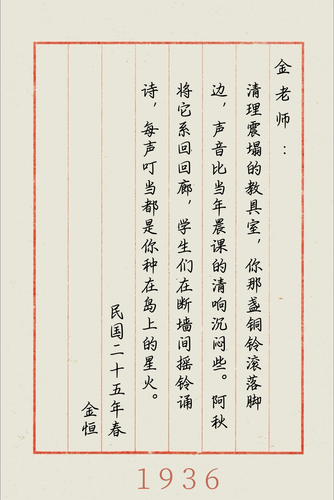 金老师：
清理震塌的教具室，你那盏铜铃滚落脚
边，声音比当年晨课的清响沉闷些。阿秋
将它系回回廊，学生们在断墙间摇铃诵
诗，每声叮当都是你种在岛上的星火。
民国二十五年春
金恒
1936